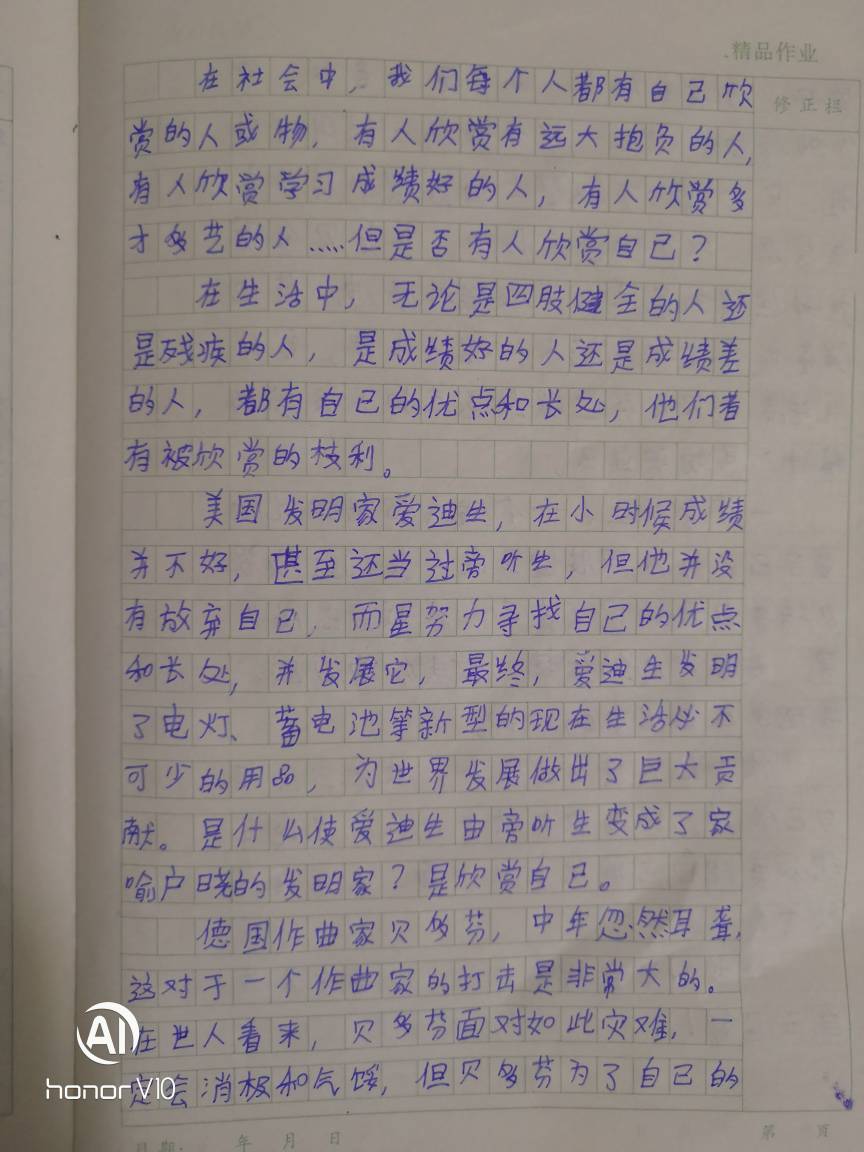 精品作业
修正栏
在社会中，我们每个人都有自己欣
赏的人或物，有人欣赏有远大抱负的人，
有人欣赏学习成绩好的人，有人欣赏多
才多艺的人……但是否有人欣赏自己？
在生活中，无论是四肢健全的人还
是残疾的人，是成绩好的人还是成绩差
的人，都有自己的优点和长处，他们者
有被欣赏的枝利。
美国发明家爱迪生，在小时候成绩
并不好，甚至还当过旁听生，但他并没
有放弃自己，而星努力寻找自己的优点
和长处，并发展它，最终，爱迪生发明
了电灯、蓄电池等新型的现在生活必不
可少的用品，为世界发展做出了巨大贡
献。是什么使爱迪生由旁听生变成了家
喻户晓的发明家？是欣赏自己。
德国作曲家贝多芬，中年忽然耳聋，
这对于一个作曲家的打击是非常大的。
在世人看来，贝多芬面对如此灾难，一
定会消极和气馁，但贝多芬为了自己的
AI
honor V10
日期： 年 月 日
第 页